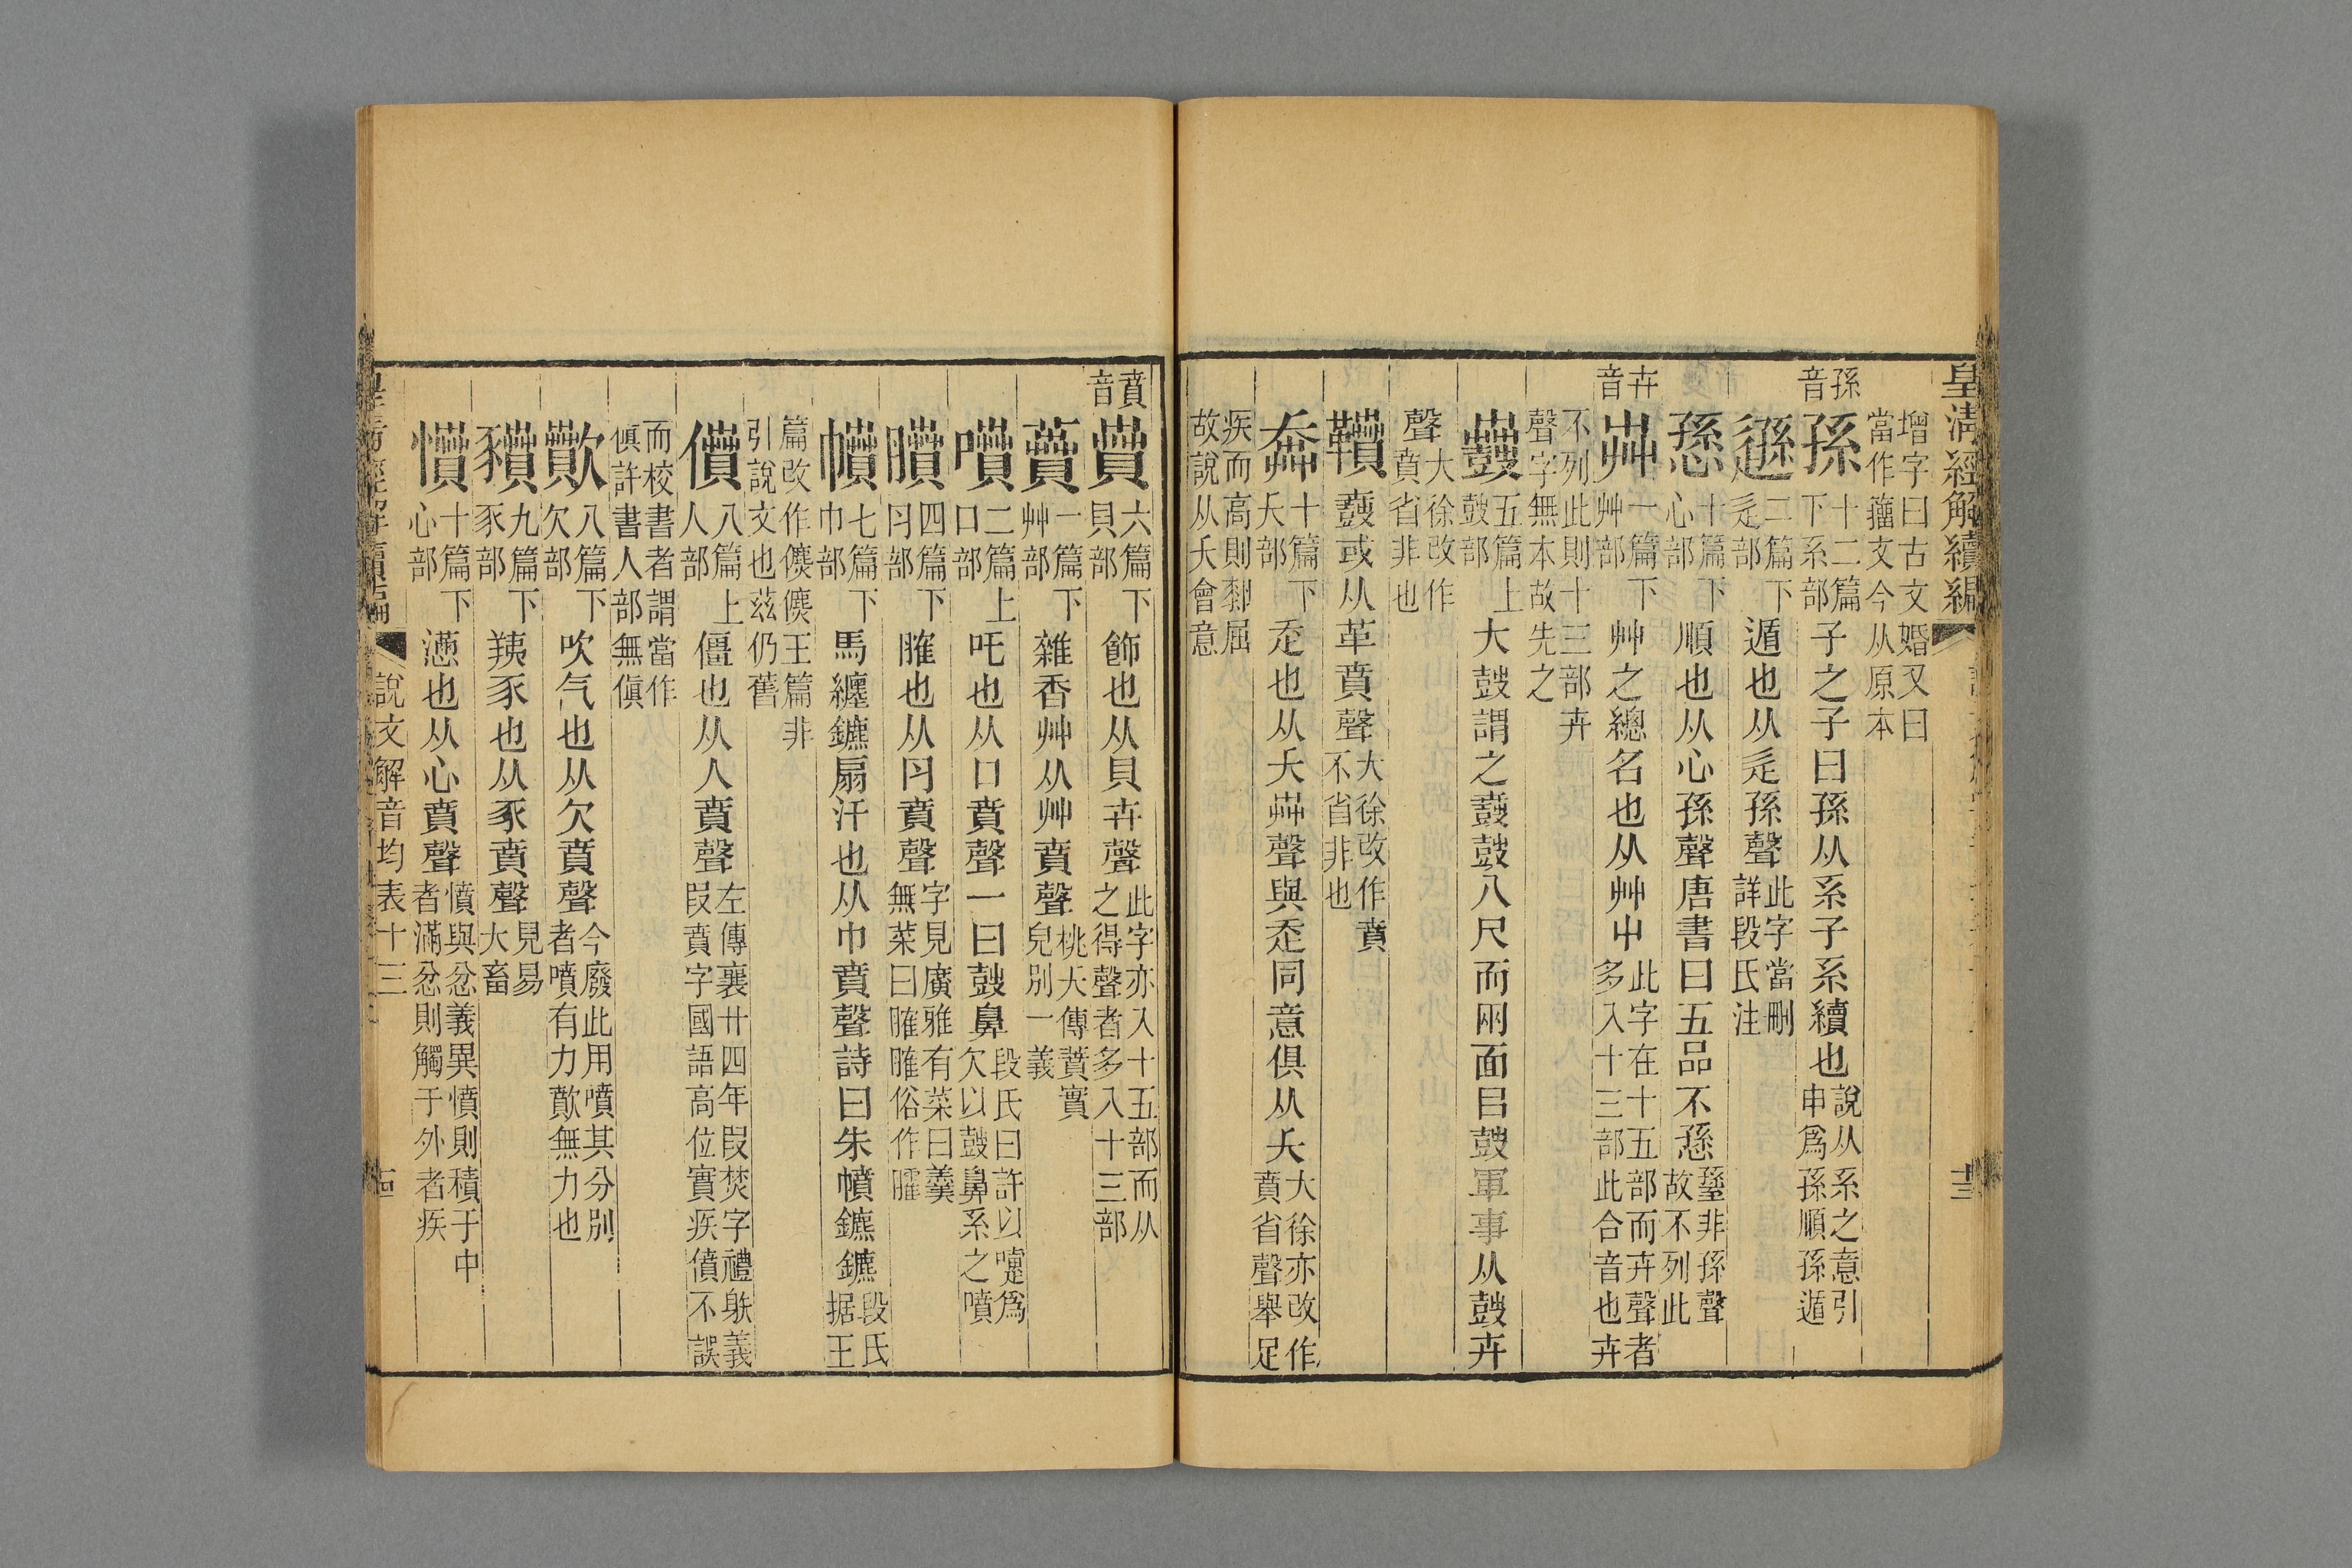 皇清經解續編
十三
增字曰古文婚又曰
當作籀文今从原本
孫音
孫 十二篇下系部 子之子曰孫从系子系續也 說从系之意引申爲孫順孫遁
遜 二篇下辵部 遁也从辵孫聲 此字當刪詳段氏注
愻 十篇下心部 順也从心孫聲唐書曰五品不愻 蓀非孫聲故不列此
卉音
芔 一篇下艸部 艸之總名也从艸屮 此字在十五部而卉聲者多入十三部此合音也卉
不列此則十三部卉
聲字無本故先之
鼖 五篇上鼓部 大鼓謂之鼖鼓八尺而兩面㠯鼓軍事从鼓卉
聲 大徐改作賁省非也
鞼 鼖或从革賁聲 大徐改作賁不省非也
奔 十篇下夭部 走也从夭芔聲與走同意俱从夭 大徐亦改作賁省聲舉足
疾而高則屈
故說从夭會意
賁音
賁 六篇下貝部 飾也从貝卉聲 此字亦入十五部而从之得聲者多入十三部
蕡 一篇下艸部 雜香艸从艸賁聲 桃夭傳蕡實皃別一義
噴 二篇上口部 吒也从口賁聲一曰鼓鼻 段氏曰許以嚏爲欠以鼓鼻系之噴
膹 四篇下肉部 臛也从肉賁聲 字見廣雅有菜曰羹無菜曰臛臛俗作臛
幩 七篇下巾部 馬纏鑣扇汗也从巾賁聲詩曰朱幩鑣鑣 段氏据王
篇改作儦儦王篇非
引說文也茲仍舊
僨 八篇上人部 僵也从人賁聲 左傳襄廿四年叚焚字禮射義叚賁字國語高位實疾僨不誤
而校書者謂當作
傎許書人部無傎
歕 八篇下欠部 吹气也从欠賁聲 今廢此用噴其分別者噴有力歕無力也
豶 九篇下豕部 羠豕也从豕賁聲 見易大畜
憤 十篇下心部 懣也从心賁聲 憤與忿義異憤則積于中者滿忿則觸于外者疾
皇清經解續編
說文解音均表十三
十四